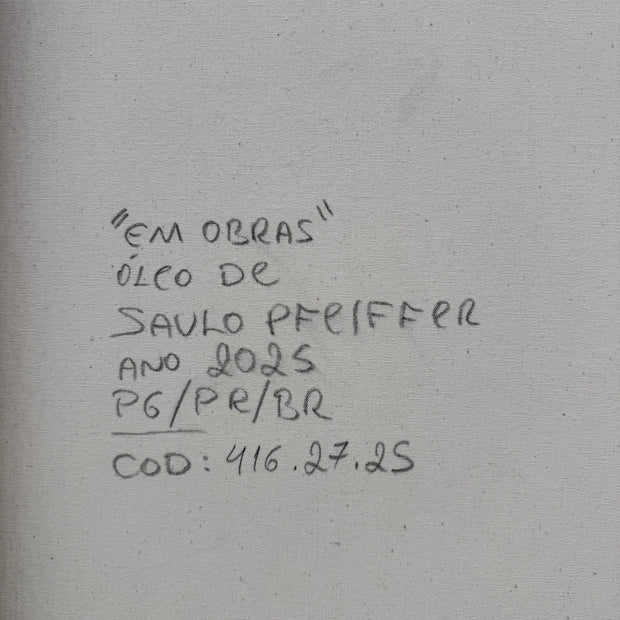 "EM OBRAS"
ÓLEO DE
SAULO PFEIFFER
ANO 2025
PG/PR/BR
COD: 416.27.25